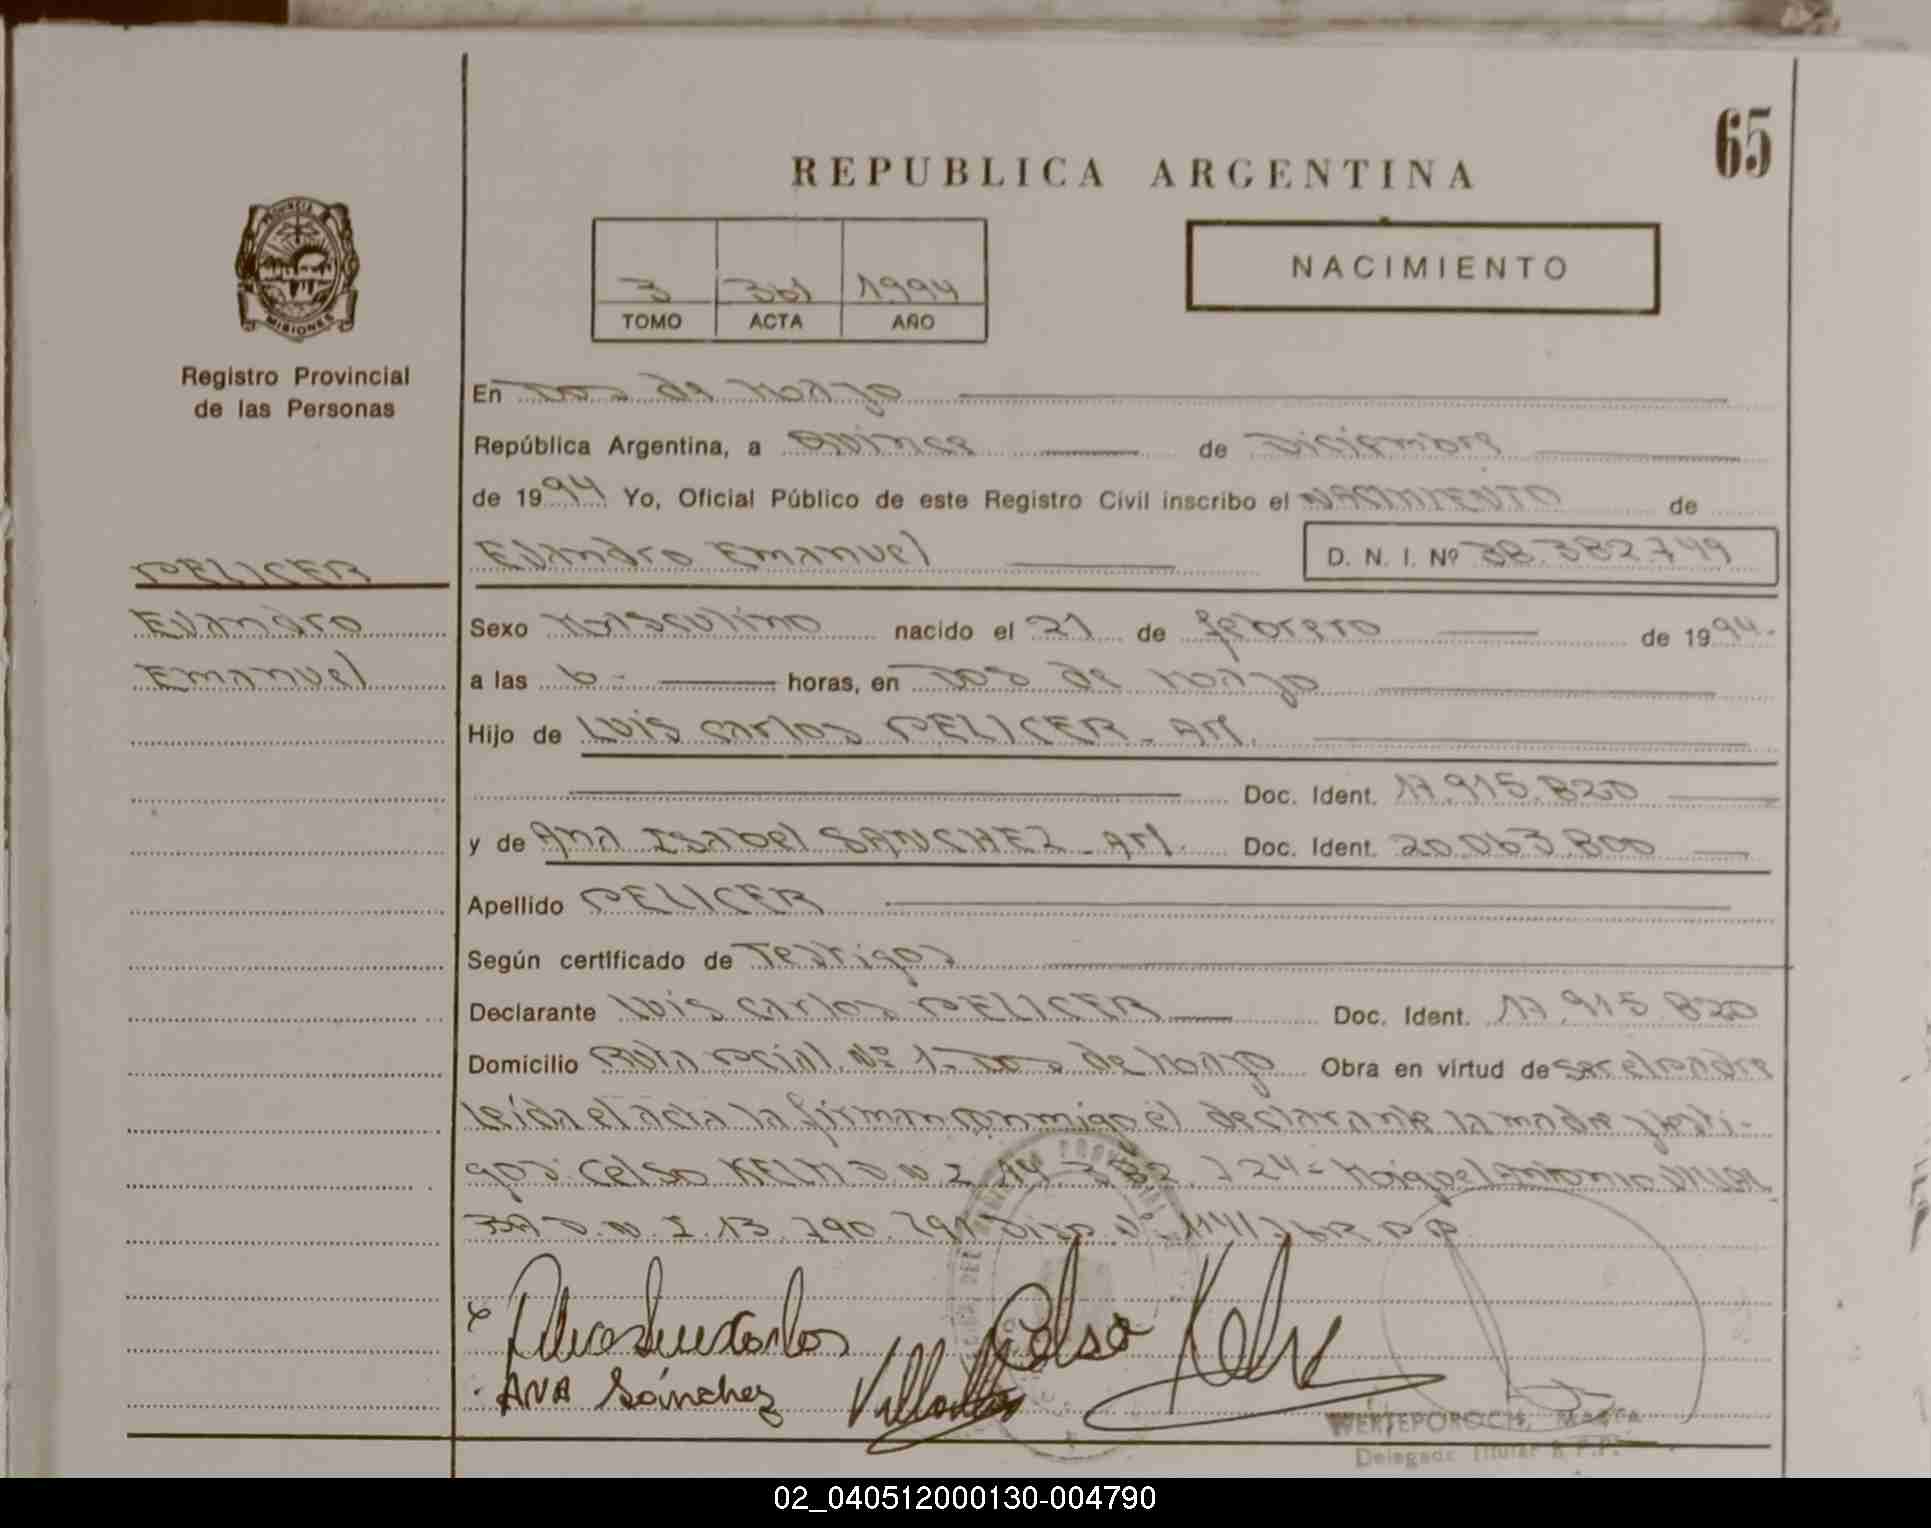 65
REPUBLICA ARGENTINA
PROVINCIA DE
MISIONES
Registro Provincial
de las Personas
3 361 1994
TOMO ACTA AÑO
NACIMIENTO
En Dos de Mayo
República Argentina, a Quince de Diciembre
de 1994 Yo, Oficial Público de este Registro Civil inscribo el NACIMIENTO de
PELICER
Evandro Emanuel D. N. I. Nº 38.382.749
Evandro
Sexo Masculino nacido el 21 de febrero de 1994.
Emanuel
a las 6- horas, en Dos de Mayo
Hijo de Luis Carlos PELICER - Arj.
Doc. Ident. 17.915.820
y de Ana Isabel SANCHEZ - Arj. Doc. Ident. 20.063.800
Apellido PELICER
Según certificado de Testigos
Declarante Luis Carlos PELICER Doc. Ident. 17.915.820
Domicilio Ruta Pcial. Nº 1- Dos de Mayo Obra en virtud de ser el padre
Leída el acta la firman conmigo el declarante la madre y testi-
gos: Celso KELM D N I 14.332.724 - Miguel Antonio VILLAL
BA D.N.I. 13.790.791 Dizp. Nº 114/76R.P.P.
Luis Carlos
Celso Kelm
ANA Sánchez
Villalba
WERTEPOROCH, MARTA
Delegado Titular R.P.P.
02_040512000130-004790